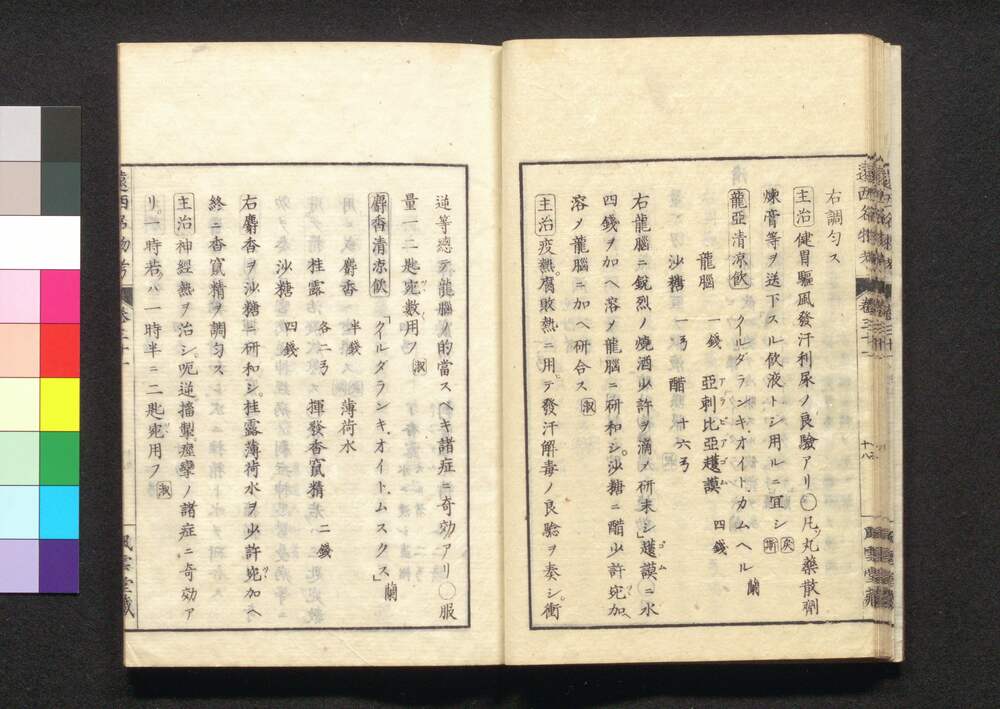 右調匀ス
主治健胃驅風發汗利尿ノ良驗アリ○凡丸藥散劑
煉膏等ヲ送下スル飲液トシ用ルニ宜シ
龍亞清凉飲 クイルダランキ.オイト.カムヘル 蘭
龍腦 一錢 亞剌比亞護謨 四錢
沙糖 一丂 醋 十六丂
右龍腦ニ銳烈ノ燒酒少許ヲ滴メ研末シ護謨○ニ水
四錢ヲ加ヘ溶メ龍腦ニ研和シ沙糖ニ醋少許宛加ヘ
溶メ龍腦ニ加ヘ研合ス 淑
主治疫熱腐敗熱ニ用テ發汗解毒ノ良驗ヲ奏シ衝
逆等總テ龍腦ノ的當スヘキ諸症ニ奇効アリ○服
量一二匙宛數用フ 淑
麝香清凉飲 「クイルダランキ.オイト.ムスクス」 蘭
麝香 半錢 薄荷水
桂露 各二丂 揮發香竄精 二錢
沙糖 四錢
右麝香ヲ沙糖ニ研和シ桂露薄荷水ヲ少許宛加ヘ
終ニ香竄精ヲ調匀ス
主治神經熱ヲ治シ呃逆搐掣痙攣ノ諸症ニ奇効ア
リ一時若ハ一時半ニ二匙宛用フ 淑